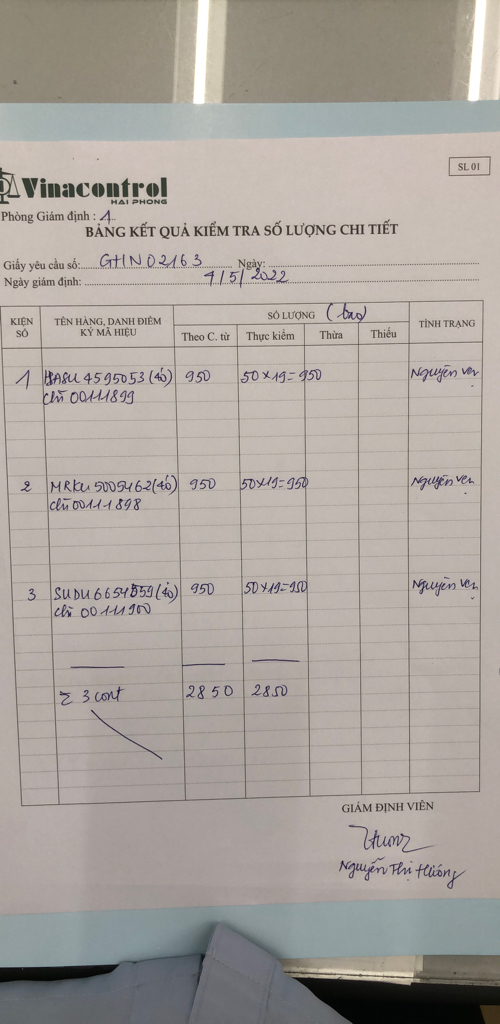 SL 01
Vinacontrol
HAI PHONG
Phòng Giám định : 1
BẢNG KẾT QUẢ KIỂM TRA SỐ LƯỢNG CHI TIẾT
Giấy yêu cầu số: GHN02163 Ngày:
Ngày giám định: 7/5/2022
KIỆN SỐ TÊN HÀNG, DANH ĐIỂM KÝ MÃ HIỆU SỐ LƯỢNG (bao) TÌNH TRẠNG
Theo C. từ Thực kiểm Thừa Thiếu
1 HASU 4595053 (40) 950 50×19=950 Nguyên vẹn
chì 00111899
2 MRKU 5005462 (40) 950 50×19=950 Nguyên vẹn
chì 00111898
3 SUDU 6654559 (40) 950 50×19=950 Nguyên vẹn
chì 00111900
Σ 3 cont 2850 2850
GIÁM ĐỊNH VIÊN
Nguyễn Thị Hương